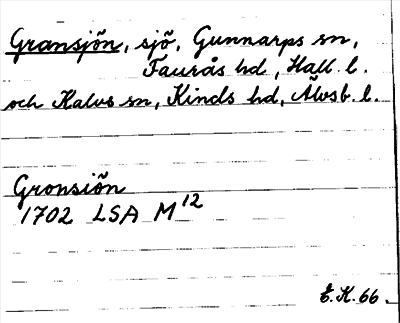 Gransjön, sjö, Gunnarps sn,
Faurås hd, Hall. l.
och Kalvs sn, Kinds hd, Älvsb. l.
Gronsiön
1702 LSA M¹²
E.K. 66.